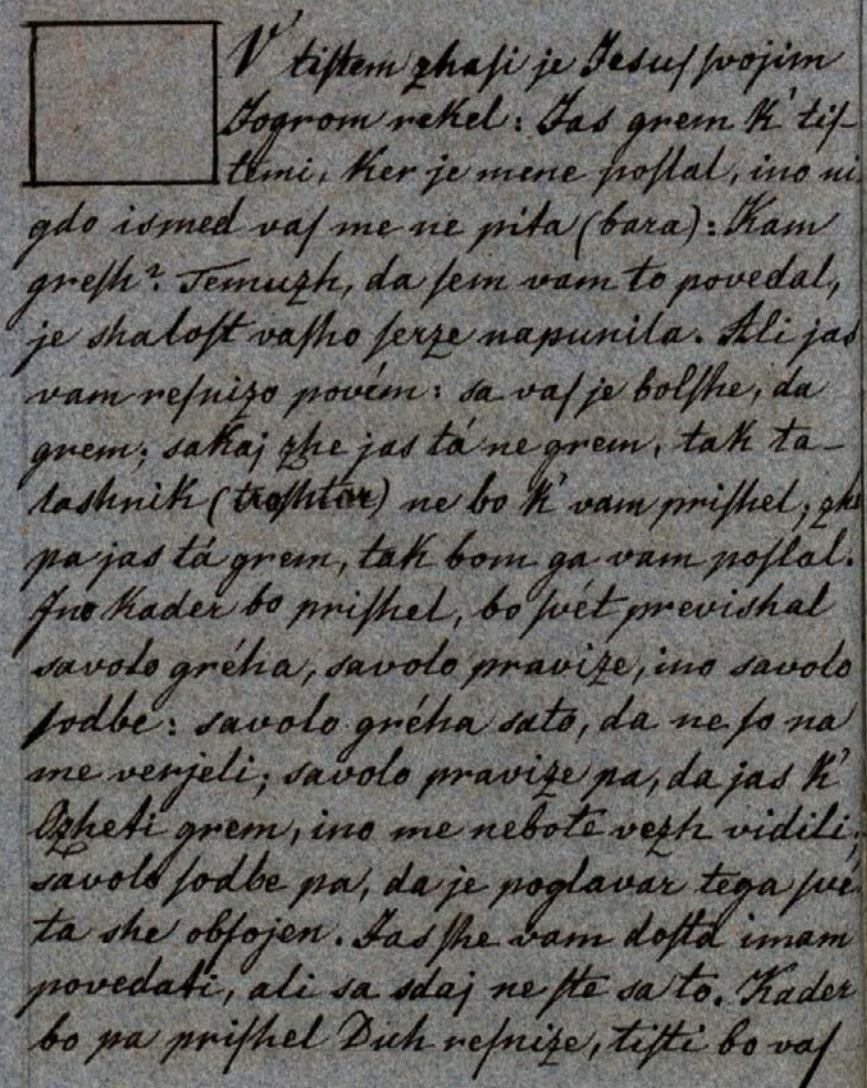 V' tiſtem zhaſi je Jesuſ ſvojim
Jogrom rekel: Jas grem k' tiſ-
temi, ker je mene poſlal, ino ni
gdo ismed vaſ me ne pita (bara): Kam
greſh? Temuzh, da ſem vam to povedal,
je shaloſt vaſho ſerze napunila. Ali jas
vam reſnizo povém: sa vaſ je bolſhe, da
grem; sakaj zhe jas tá ne grem, tak ta-
lashnik (troſhtar) ne bo k' vam priſhel; zhe
pa jas tá grem, tak bom ga vam poſlal.
Ino kader bo priſhel, bo ſvét previshal
savolo gréha, savolo pravize, ino savolo
ſodbe: savolo gréha sato, da ne ſo na
me verjeli; savolo pravize pa, da jas k'
Ozheti grem, ino me nebote vezh vidili;
savolo ſodbe pa, da je poglavar tega ſvé
ta she obſojen. Jas ſhe vam doſta imam
povedati, ali sa sdaj ne ſte sa to. Kader
bo pa priſhel Duh reſnize, tiſti bo vaſ